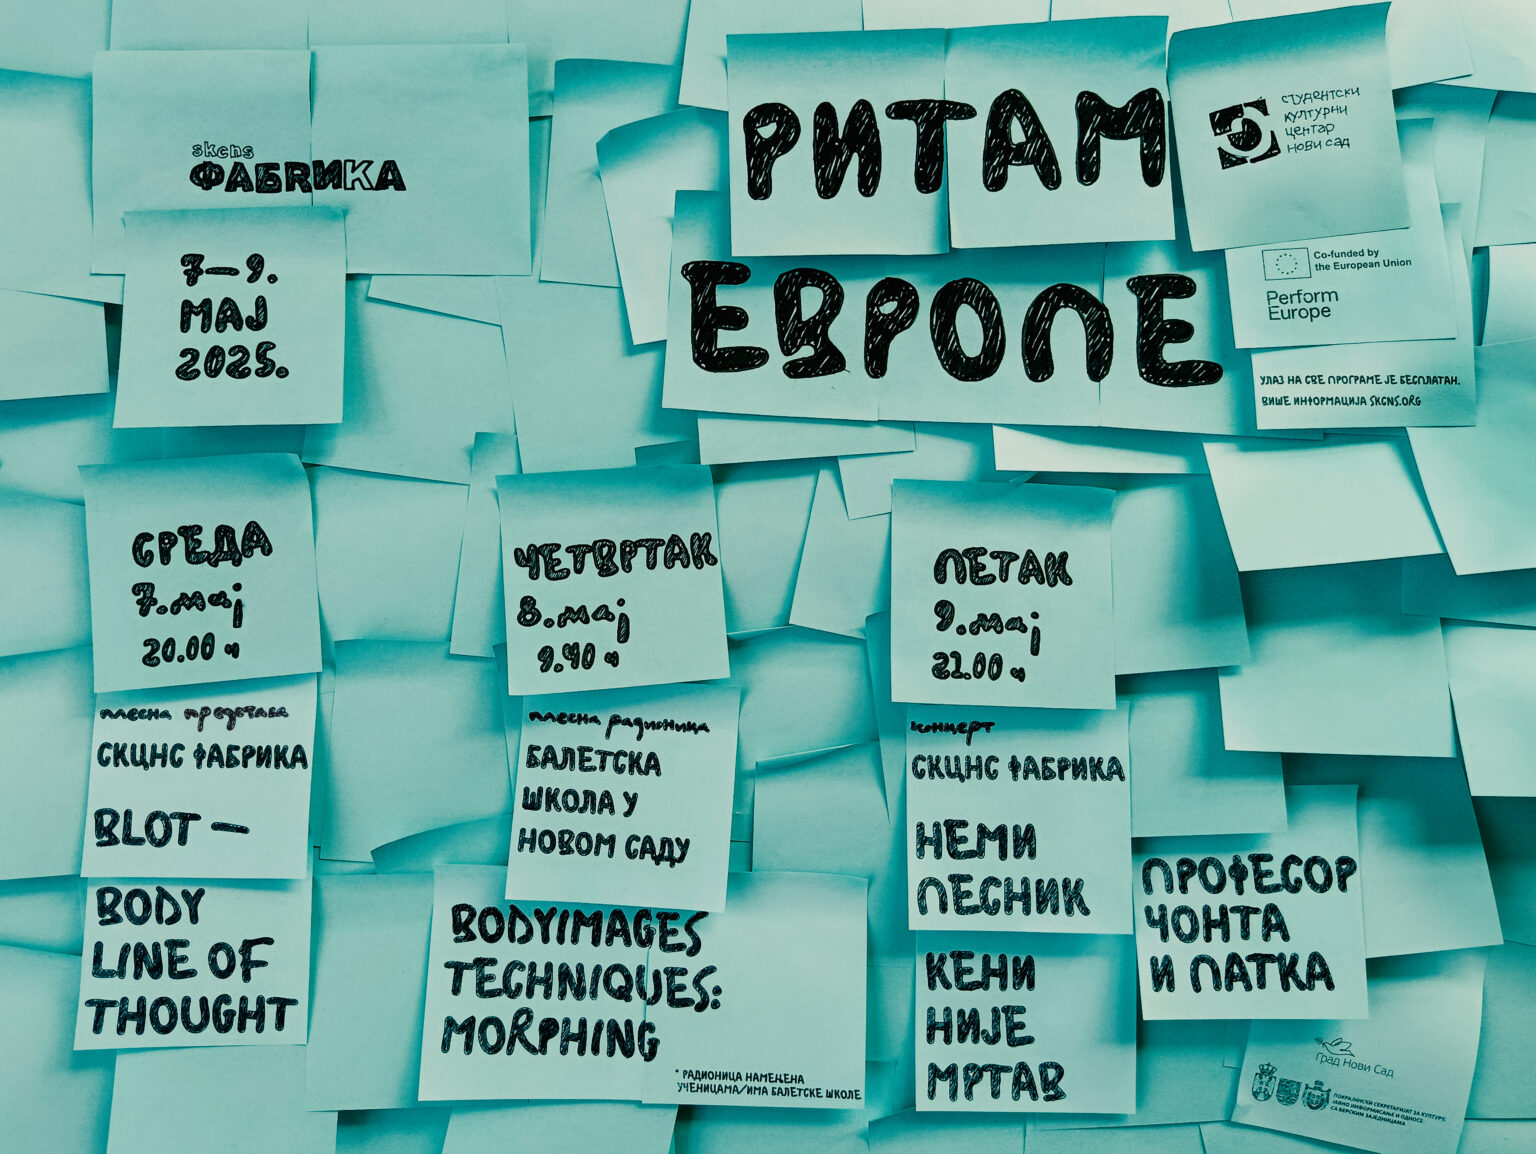 skcns
ФАБRИКА
7–9.
МАЈ
2025.
РИТАМ
ЕВРОПЕ
СТУДЕНТСКИ
КУЛТУРНИ
ЦЕНТАР
НОВИ САД
Co-funded by
the European Union
Perform
Europe
УЛАЗ НА СВЕ ПРОГРАМЕ ЈЕ БЕСПЛАТАН.
ВИШЕ ИНФОРМАЦИЈА SKCNS.ORG
СРЕДА
7. мај
20.00 ч
плесна представа
СКЦНС ФАБРИКА
BLOT –
BODY
LINE OF
THOUGHT
ЧЕТВРТАК
8. мај
9.40 ч
плесна радионица
БАЛЕТСКА
ШКОЛА У
НОВОМ САДУ
BODYIMAGES
TECHNIQUES:
MORPHING
* РАДИОНИЦА НАМЕЊЕНА
УЧЕНИЦАМА/ИМА БАЛЕТСКЕ ШКОЛЕ
ПЕТАК
9. мај
21.00 ч
концерт
СКЦНС ФАБРИКА
НЕМИ
ПЕСНИК
КЕНИ
НИЈЕ
МРТАВ
ПРОФЕСОР
ЧОНТА
И ПАТКА
Град Нови Сад
ПОКРАЈИНСКИ СЕКРЕТАРИЈАТ ЗА КУЛТУРУ,
ЈАВНО ИНФОРМИСАЊЕ И ОДНОСЕ
СА ВЕРСКИМ ЗАЈЕДНИЦАМА